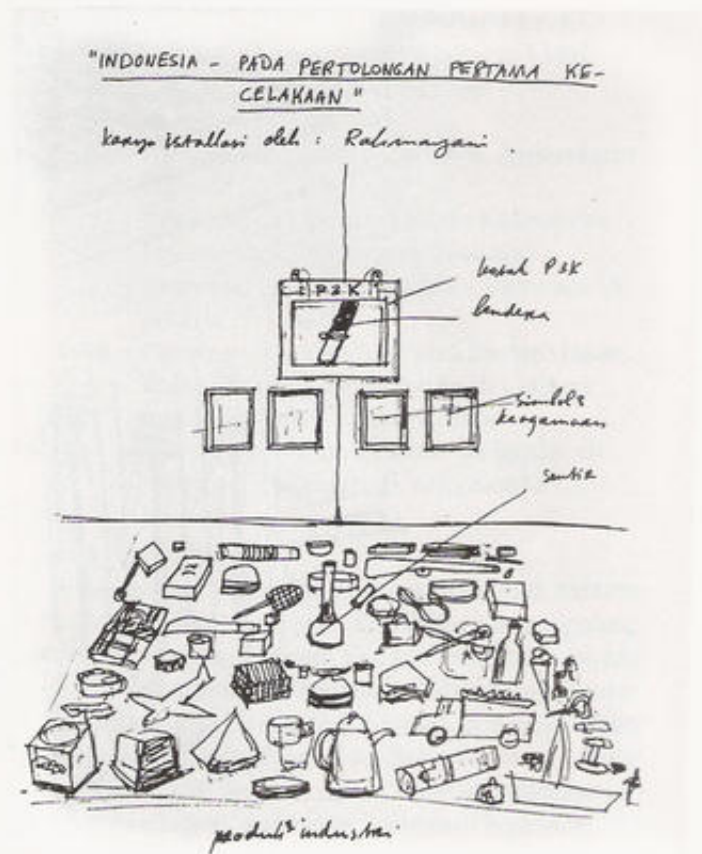 "INDONESIA - PADA PERTOLONGAN PERTAMA KE-
CELAKAAN"
karya istallasi oleh : Rahmayani.
P3K
kotak P3K
bendera
simbol2
keagamaan
produk2 industri